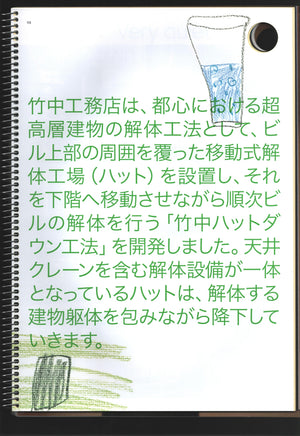 竹中工務店は、都心における超
高層建物の解体工法として、ビ
ル上部の周囲を覆った移動式解
体工場（ハット）を設置し、それ
を下階へ移動させながら順次ビ
ルの解体を行う「竹中ハットダ
ウン工法」を開発しました。天井
クレーンを含む解体設備が一体
となっているハットは、解体する
建物躯体を包みながら降下して
いきます。